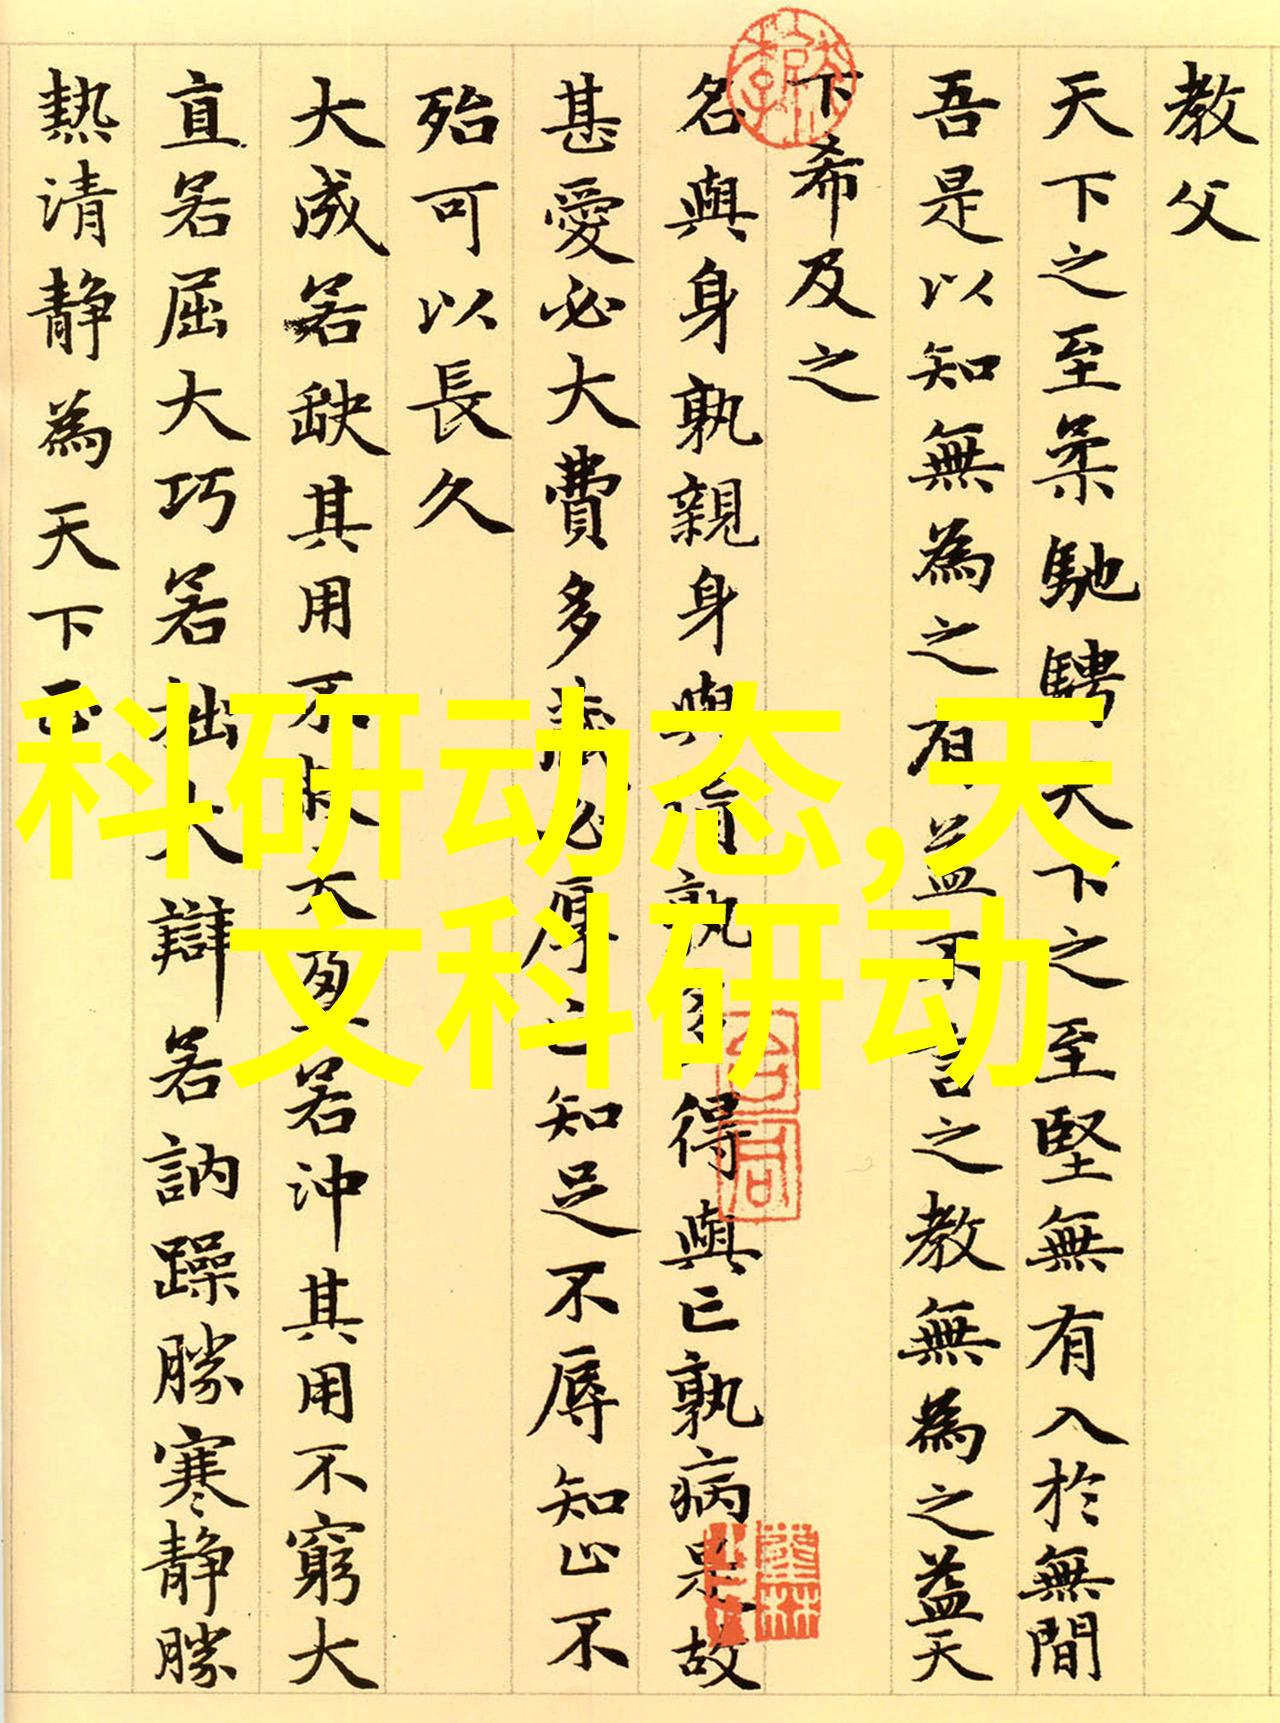 教父
天下之至柔馳騁天下之至堅無有入於無間
吾是以知無為之有益不言之教無為之益天
下希及之
名與身孰親身與得孰得與亡孰病是故
甚愛必大費多必辱知足不辱知止不
殆可以長久
大成若缺其用不大盈若沖其用不窮大
直若屈大巧若拙大辯若訥躁勝寒靜勝
熱清靜為天下正
科研动态,天
文科研动